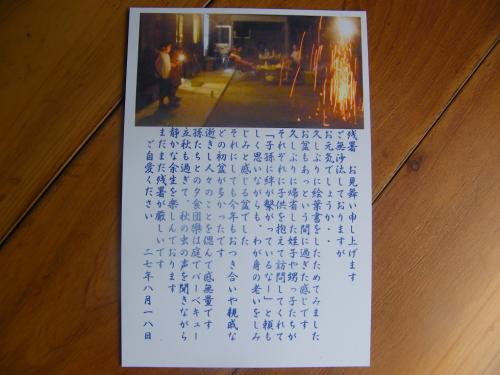 残暑　お見舞い申し上げます
ご無沙汰しておりますが
お元気でしょうか・・
久しぶりに絵葉書をしたためてみました
お盆もあっという間に過ぎた感じです
久しぶりに帰省した姪子や甥っ子たちが
それぞれに子供を抱えて訪問してくれて
「子孫に絆が繋がっているなー」と頼も
しく思いながらも、わが身の老いをしみ
じみと感じる盆でした
それにしても今年もおつき合いや親戚な
どの初盆が多かったです
逝きし人々のことを偲んで感無量です
孫たちとの夕食団欒は庭でバーベキュー
立秋も過ぎて、秋の虫の声を聞きながら
静かな余生を楽しんでおります
まだまだ残暑が厳しいです
ご自愛ください　二七年八月一八日